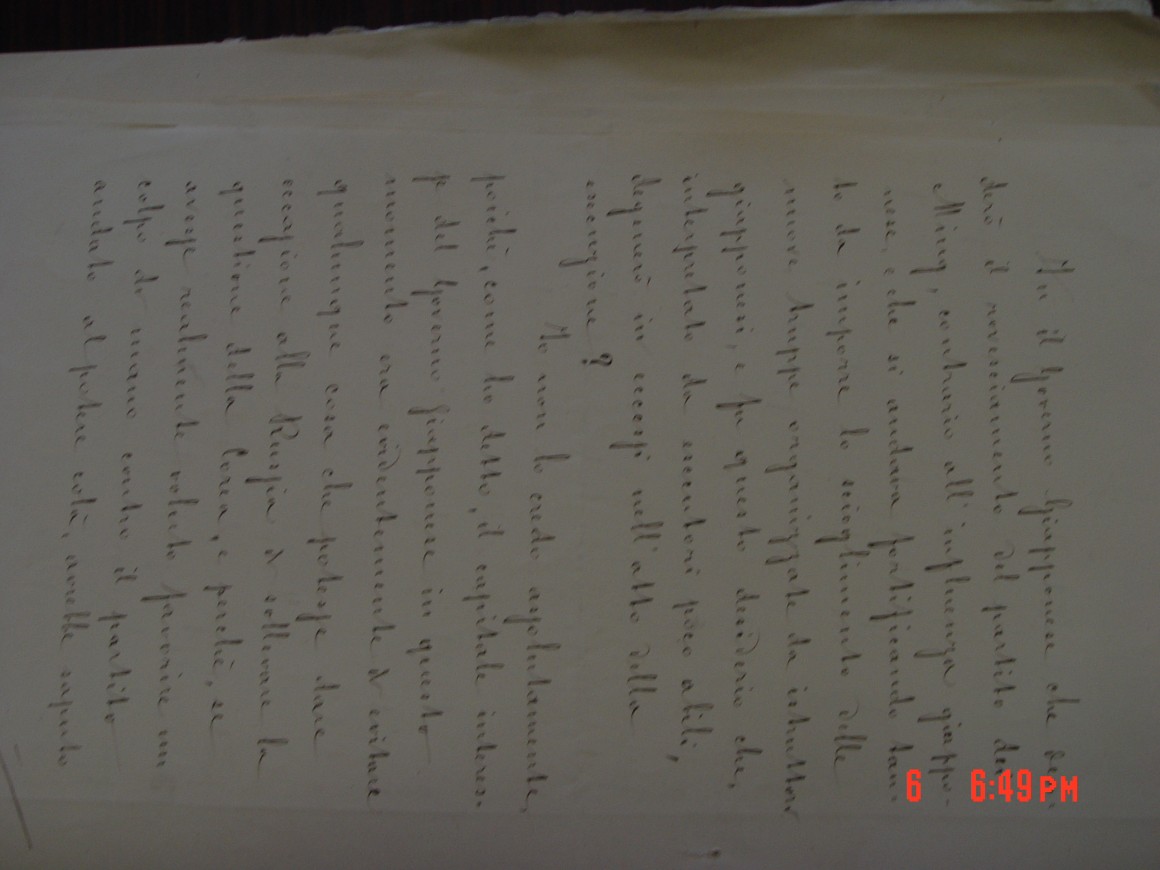 Fu il Governo Giapponese che desi-
derò il rovesciamento del partito dei
Ming, contrario all'influenza giappo-
nese, e che si andava fortificando tan-
to da imporre lo scioglimento delle
nuove truppe organizzate da istruttori
giapponesi, e fu questo desiderio che,
interpretato da esecutori poco abili,
degenerò in eccessi nell'atto della
esecuzione?
Io non lo credo assolutamente,
poichè, come ho detto, il capitale interes-
se del Governo Giapponese in questo
momento era evidentemente di evitare
qualunque cosa che potesse dare
occasione alla Russia di sollevare la
questione della Corea, e perchè, se
avesse realmente voluto favorire un
colpo di mano contro il partito
andato al potere colà, avrebbe saputo
6 6:49PM